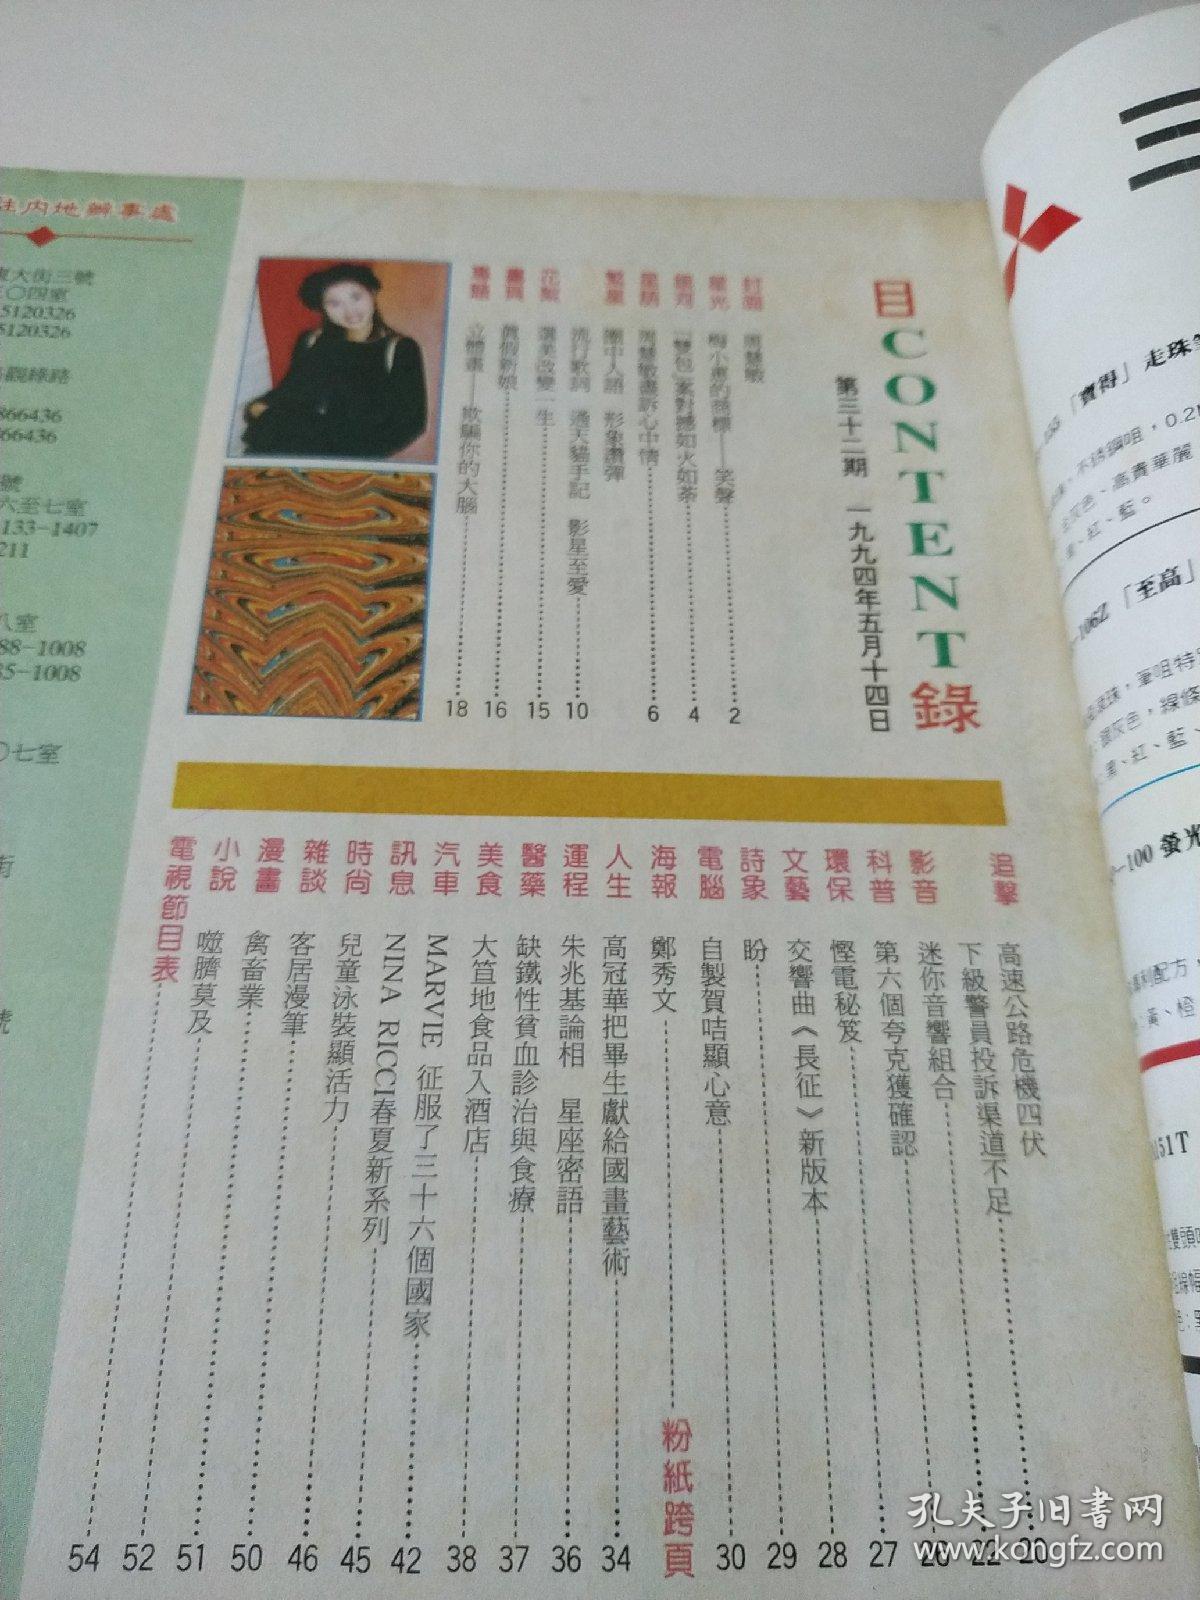 目 CONTENT 錄
第三十二期 一九九四年五月十四日
封面 周慧敏
星光 梅小惠的商標——笑聲 2
星河 「雙包」案對撼如火如荼 4
星情 周慧敏盡訴心中情 6
繁星 圈中人語 形象讚彈
流行歌詞 通天貓手記 影星至愛 10
花絮 選美改變一生 15
畫頁 真假新娘 16
專題 立體畫——欺騙你的大腦 18
追擊 高速公路危機四伏 20
下級警員投訴渠道不足 22
影音 迷你音響組合 26
科普 第六個夸克獲確認 27
環保 慳電秘笈 28
文藝 交響曲《長征》新版本 29
詩象 盼 30
電腦 自製賀咭顯心意
海報 鄭秀文 粉紙跨頁
人生 高冠華把畢生獻給國畫藝術 34
運程 朱兆基論相 星座密語 36
醫藥 缺鐵性貧血診治與食療 37
美食 大笪地食品入酒店 38
汽車 MARVIE 征服了三十六個國家 42
訊息 NINA RICCI春夏新系列 45
時尚 兒童泳裝顯活力 46
雜談 客居漫筆 50
漫畫 禽畜業 51
小說 噬臍莫及 52
電視節目表 54
駐內地辦事處
東大街三號
二〇四室
5120326
5120326
觀綠路
866436
866436
號
六至七室
133-1407
211
八室
88-1008
85-1008
〇七室
街
號
三
「寶得」走珠筆
不銹鋼咀，0.2
灰色、高貴華麗
、紅、藍。
-106Z「至高」
走珠，筆咀特
銀灰色，線條
黑、紅、藍、
-100 螢光
專利配方，
黃、橙
151T
雙頭
孔夫子旧书网
www.kongfz.com